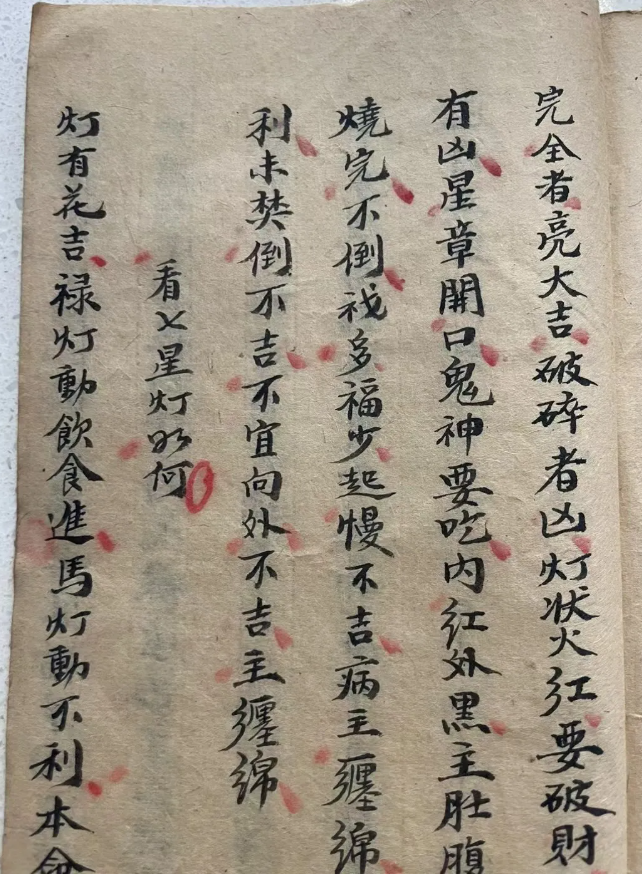 完全者亮大吉破碎者凶灯状火红要破財
有凶星章開口鬼神要吃内红外黑主肚腹
燒完不倒祸多福少起慢不吉病主纏綿
利未焚倒不吉不宜向外不吉主纏綿
看七星灯如何
灯有花吉禄灯動飲食進馬灯動不利本命